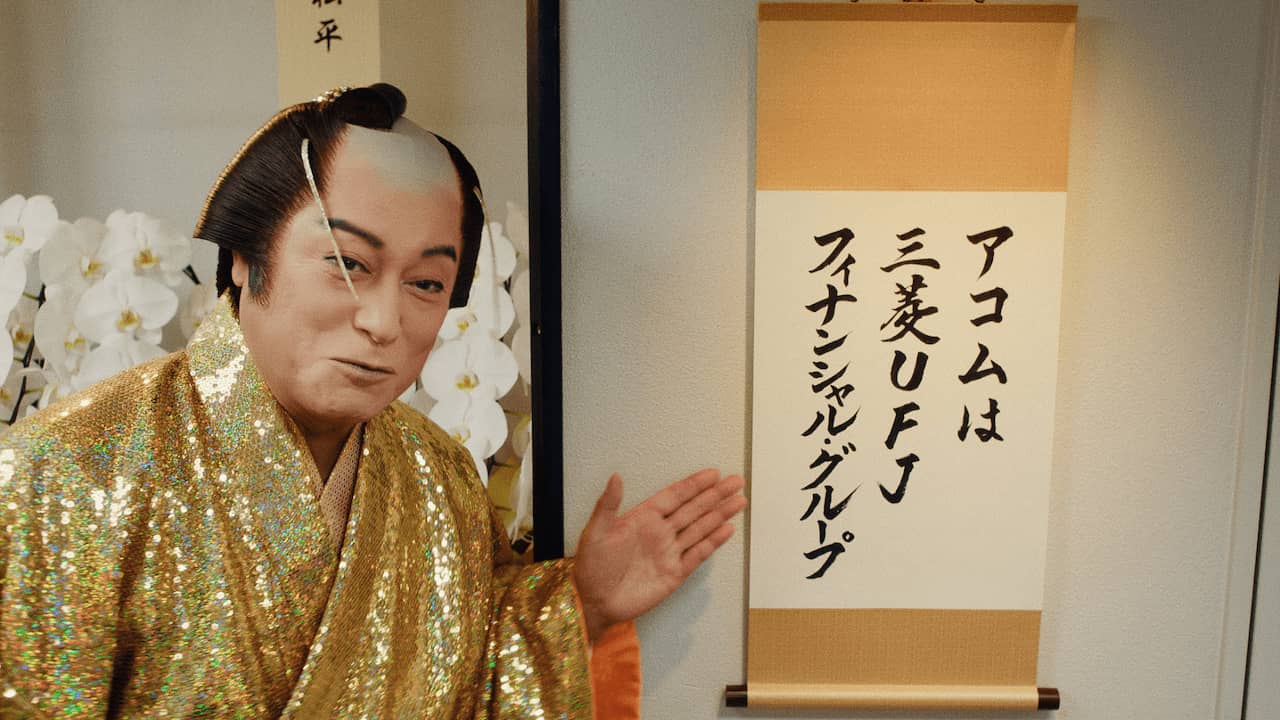 アコムは
三菱UFJ
フィナンシャル・グループ
平